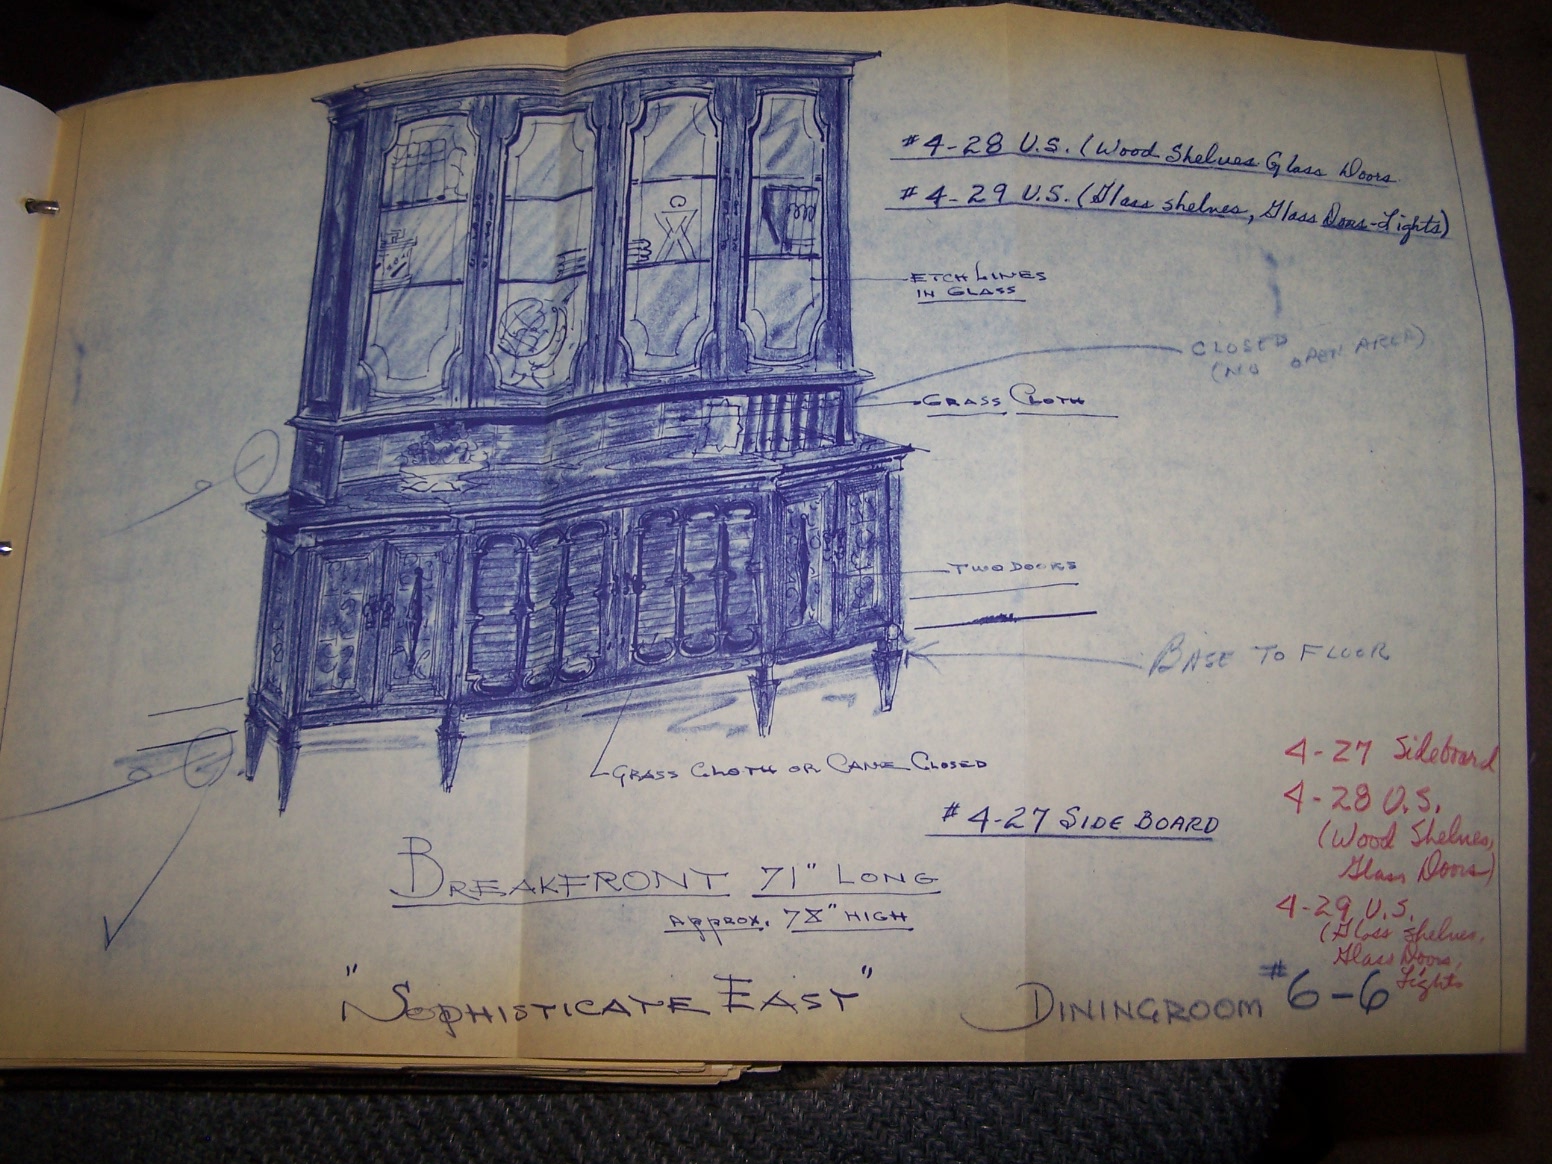 # 4-28 U.S. (Wood Shelves Glass Doors
# 4-29 U.S. (Glass shelves, Glass Doors-Lights)
ETCH LINES
IN GLASS
CLOSED
(NO OPEN AREA)
GRASS CLOTH
TWO DOORS
BASE TO FLOOR
GRASS CLOTH OR CANE CLOSED
# 4-27 SIDE BOARD
4-27 Sideboard
4-28 U.S.
(Wood Shelves,
Glass Doors)
4-29 U.S.
(Glass Shelves,
Glass Doors,
Lights
BREAKFRONT 71" LONG
APPROX. 78" HIGH
"SOPHISTICATE EAST"
DININGROOM #6-6